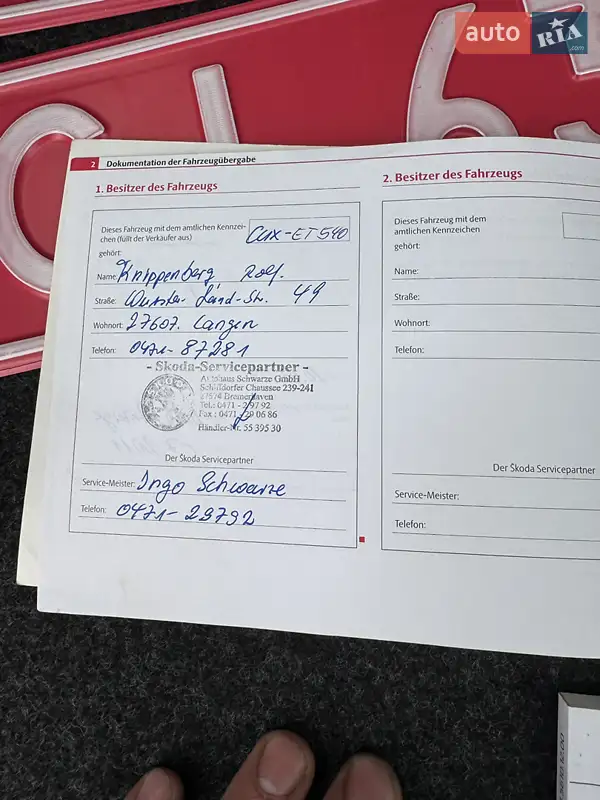 auto RIA .com
CI 63
2 Dokumentation der Fahrzeugübergabe
1. Besitzer des Fahrzeugs
Dieses Fahrzeug mit dem amtlichen Kennzei-
chen (füllt der Verkäufer aus)
CUX-ET 540
gehört:
Name: Knippenberg Rolf.
Straße: Wurster Land-Str. 49
Wohnort: 27607. Langen
Telefon: 0471-87281
- Skoda-Servicepartner -
Autohaus Schwarze GmbH
Schiffdorfer Chaussee 239-241
27574 Bremerhaven
Tel.: 0471 - 297 92
Fax : 0471 - 20 06 86
Händler-Nr. 55 395 30
Der Škoda Servicepartner
Service-Meister: Ingo Schwarze
Telefon: 0471-29792
2. Besitzer des Fahrzeugs
Dieses Fahrzeug mit dem
amtlichen Kennzeichen
gehört:
Name:
Straße:
Wohnort:
Telefon:
Der Škoda Servicepartner
Service-Meister:
Telefon: